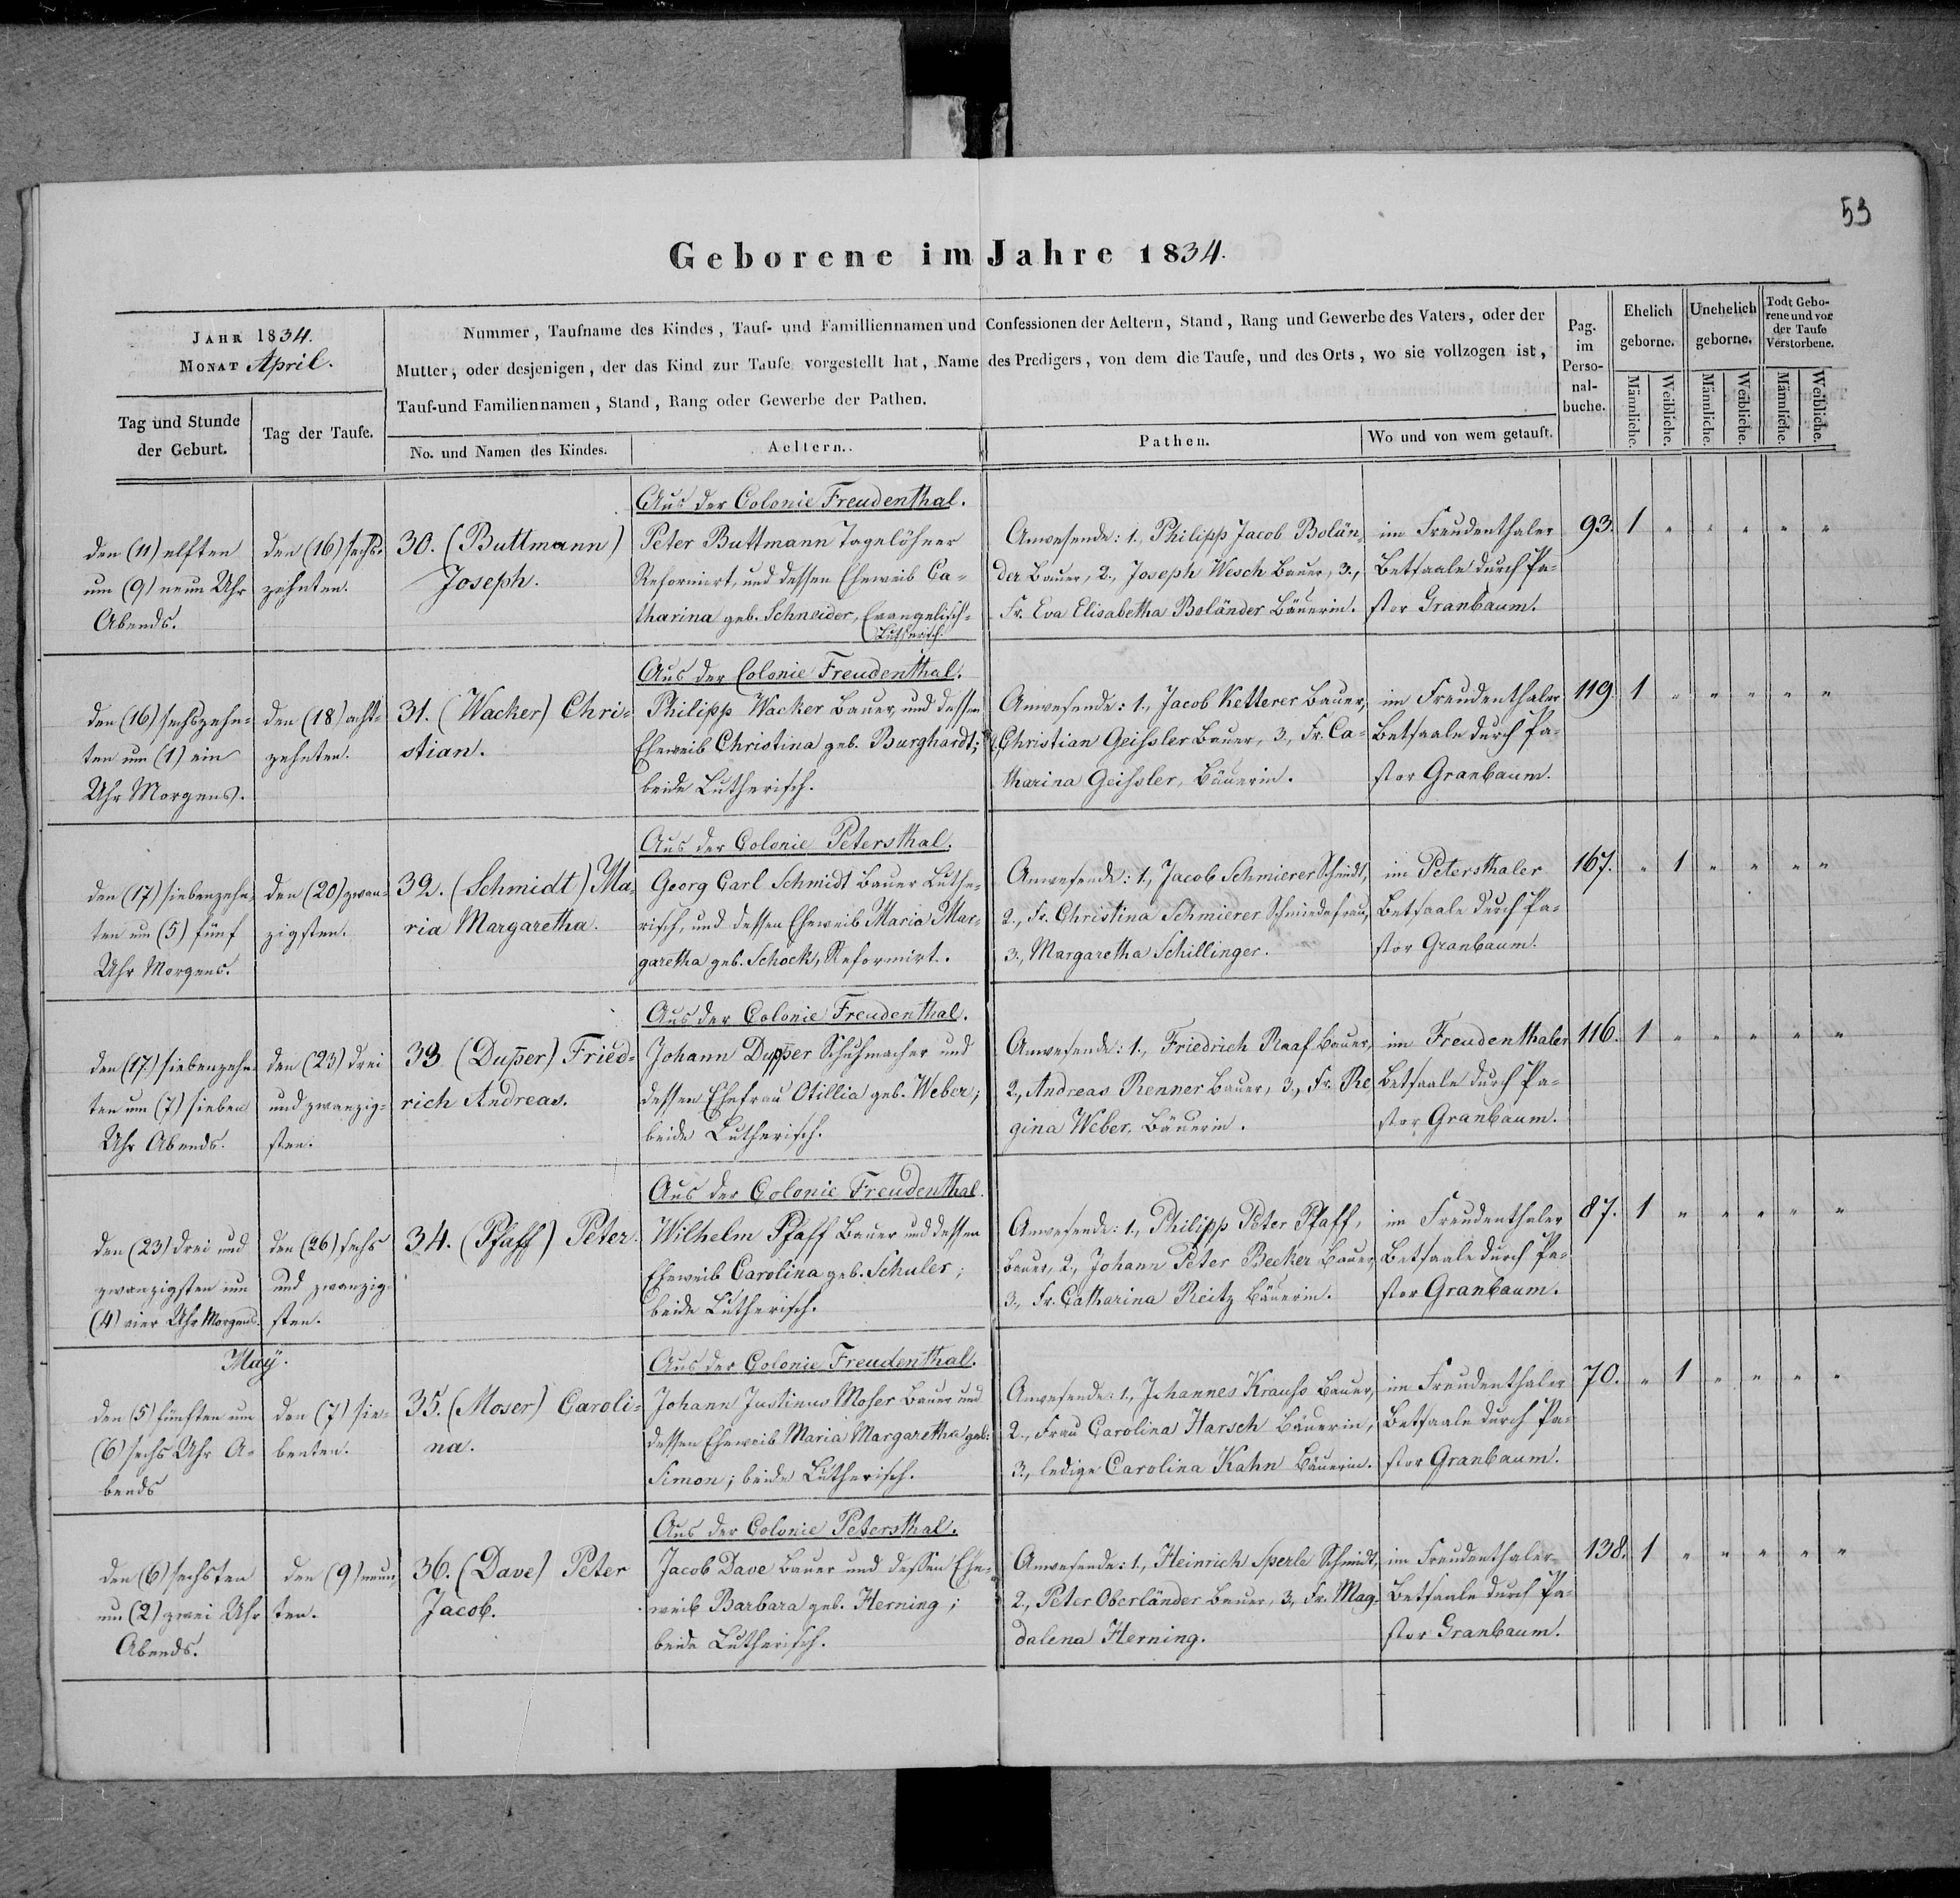 53
Geborene im Jahre 1834.
JAHR 1834.
MONAT April.
Tag und Stunde
der Geburt.
Tag der Taufe.
Nummer, Taufname des Kindes, Tauf- und Familliennamen und Confessionen der Aeltern, Stand, Rang und Gewerbe des Vaters, oder der
Mutter, oder desjenigen, der das Kind zur Taufe vorgestellt hat, Name des Predigers, von dem die Taufe, und des Orts, wo sie vollzogen ist,
Tauf-und Familiennamen, Stand, Rang oder Gewerbe der Pathen.
No. und Namen des Kindes.
Aeltern..
Pathen.
Wo und von wem getauft.
Pag.
im
Perso-
nal-
buche.
Ehelich
geborne.
Unehelich
geborne.
Todt Gebo-
rene und vor
der Taufe
Verstorbene.
Männliche.
Weibliche.
Männliche.
Weibliche.
Männliche.
Weibliche.
den (11) elften
um (9) neun Uhr
Abends.
den (16) sechs-
zehnten.
30. (Buttmann)
Joseph.
Aus der Colonie Freudenthal.
Peter Buttmann Tagelöhner
Reformirt, und dessen Eheweib Ca-
tharina geb. Schneider, Evangelisch-
Lutherisch.
Anwesende: 1., Philipp Jacob Bolän-
der Bauer, 2., Joseph Wesch Bauer, 3.,
Fr. Eva Elisabetha Boländer Bäuerin.
im Freudenthaler
Betsaale durch Pa-
stor Granbaum.
93. 1 " " " " "
den (16) sechszehn-
ten um (1) ein
Uhr Morgens.
den (18) acht-
zehnten.
31. (Wacker) Chri-
stian.
Aus der Colonie Freudenthal.
Philipp Wacker Bauer, und dessen
Eheweib Christina geb. Burghardt;
beide Lutherisch.
Anwesende: 1., Jacob Ketterer Bauer,
2., Christian Geissler Bauer, 3., Fr. Ca-
tharina Geissler, Bäuerin.
im Freudenthaler
Betsaale durch Pa-
stor Granbaum.
119. 1 " " " " "
den (17) siebenzehn-
ten um (5) fünf
Uhr Morgens.
den (20) zwan-
zigsten.
32. (Schmidt) Ma-
ria Margaretha.
Aus der Colonie Petersthal.
Georg Carl Schmidt Bauer Luthe-
risch, und dessen Eheweib Maria Mar-
garetha geb. Schock, Reformirt.
Anwesende: 1., Jacob Schmierer Schmidt,
2., Fr. Christina Schmierer Schmiedefrau,
3., Margaretha Schillinger.
im Petersthaler
Betsaale durch Pa-
stor Granbaum.
167. " 1 " " " "
den (17) siebenzehn-
ten um (7) sieben
Uhr Abends.
den (23) drei
und zwanzig-
sten.
33 (Dupper) Fried-
rich Andreas.
Aus der Colonie Freudenthal.
Johann Dupper Schuhmacher und
dessen Ehefrau Otillia geb. Weber;
beide Lutherisch.
Anwesende: 1., Friedrich Raaf Bauer,
2., Andreas Renner Bauer, 3., Fr. Re-
gina Weber, Bäuerin.
im Freudenthaler
Betsaale durch Pa-
stor Granbaum.
116. 1 " " " " "
den (23) drei und
zwanzigsten um
(4) vier Uhr Morgens.
den (26) sechs
und zwanzig-
sten.
34. (Pfaff) Peter.
Aus der Colonie Freudenthal.
Wilhelm Pfaff Bauer und dessen
Eheweib Carolina geb. Schuler;
beide Lutherisch.
Anwesende: 1., Philipp Peter Pfaff,
Bauer, 2., Johann Peter Becker Bauer
3., Fr. Catharina Reitz Bäuerin.
im Freudenthaler
Betsaale durch Pa-
stor Granbaum.
87. 1 " " " " "
Maÿ.
den (5) fünften um
(6) sechs Uhr A-
bends
den (7) sie-
benten.
35. (Moser) Caroli-
na.
Aus der Colonie Freudenthal.
Johann Justinus Moser Bauer und
dessen Eheweib Maria Margaretha geb:
Simon; beide Lutherisch.
Anwesende: 1., Johannes Krauss Bauer,
2., Frau Carolina Harsch Bäuerin,
3., ledige Carolina Kahn Bäuerin.
im Freudenthaler
Betsaale durch Pa-
stor Granbaum.
70. " 1 " " " "
den (6) sechsten
um (2) zwei Uhr
Abends.
den (9) neun-
ten.
36. (Dave) Peter
Jacob.
Aus der Colonie Petersthal.
Jacob Dave Bauer und dessen Ehe-
weib Barbara geb. Herning;
beide Lutherisch.
Anwesende: 1., Heinrich Sperle Schmidt,
2., Peter Oberländer Bauer, 3., Fr. Mag-
dalena Herning.
im Freudenthaler
Betsaale durch Pa-
stor Granbaum.
138. 1 " " " " "